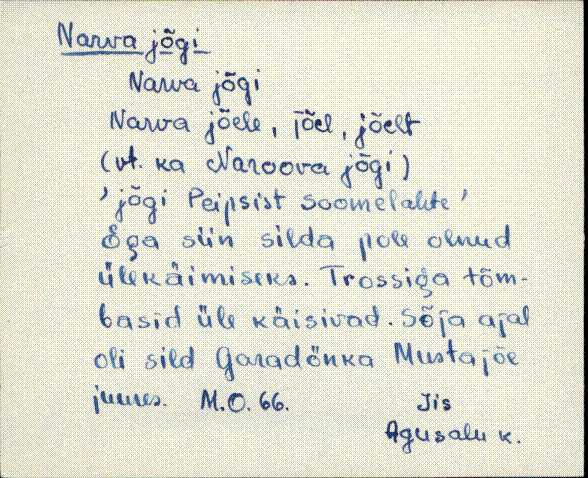 Narva jõgi
Narva jõgi
Narva jõele, jõel, jõelt
(vt. ka Naroova jõgi)
'jõgi Peipsist Soomelahte'
Ega siin silda pole olnud
ülekäimiseks. Trossiga tõm-
basid üle käisivad. Sõja ajal
oli sild Garadönka Mustajõe
juures. M.O. 66. Jis
Agusalu k.